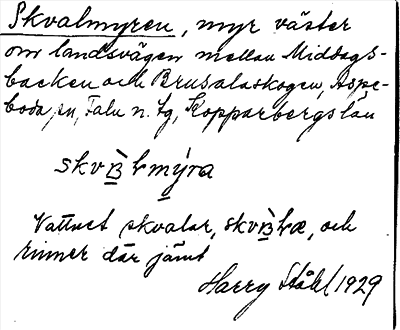 Skvalmyren, myr väster
om landsvägen mellan Middags-
backen och Brusalaskogen, Aspe-
boda sn, Falu n. tg, Kopparbergs län
skvɒ̀ɫmy̌ra
Vattnet skvalar, skvɒ̀ɫæ, och
rinner där jämt
Harry Ståhl 1929